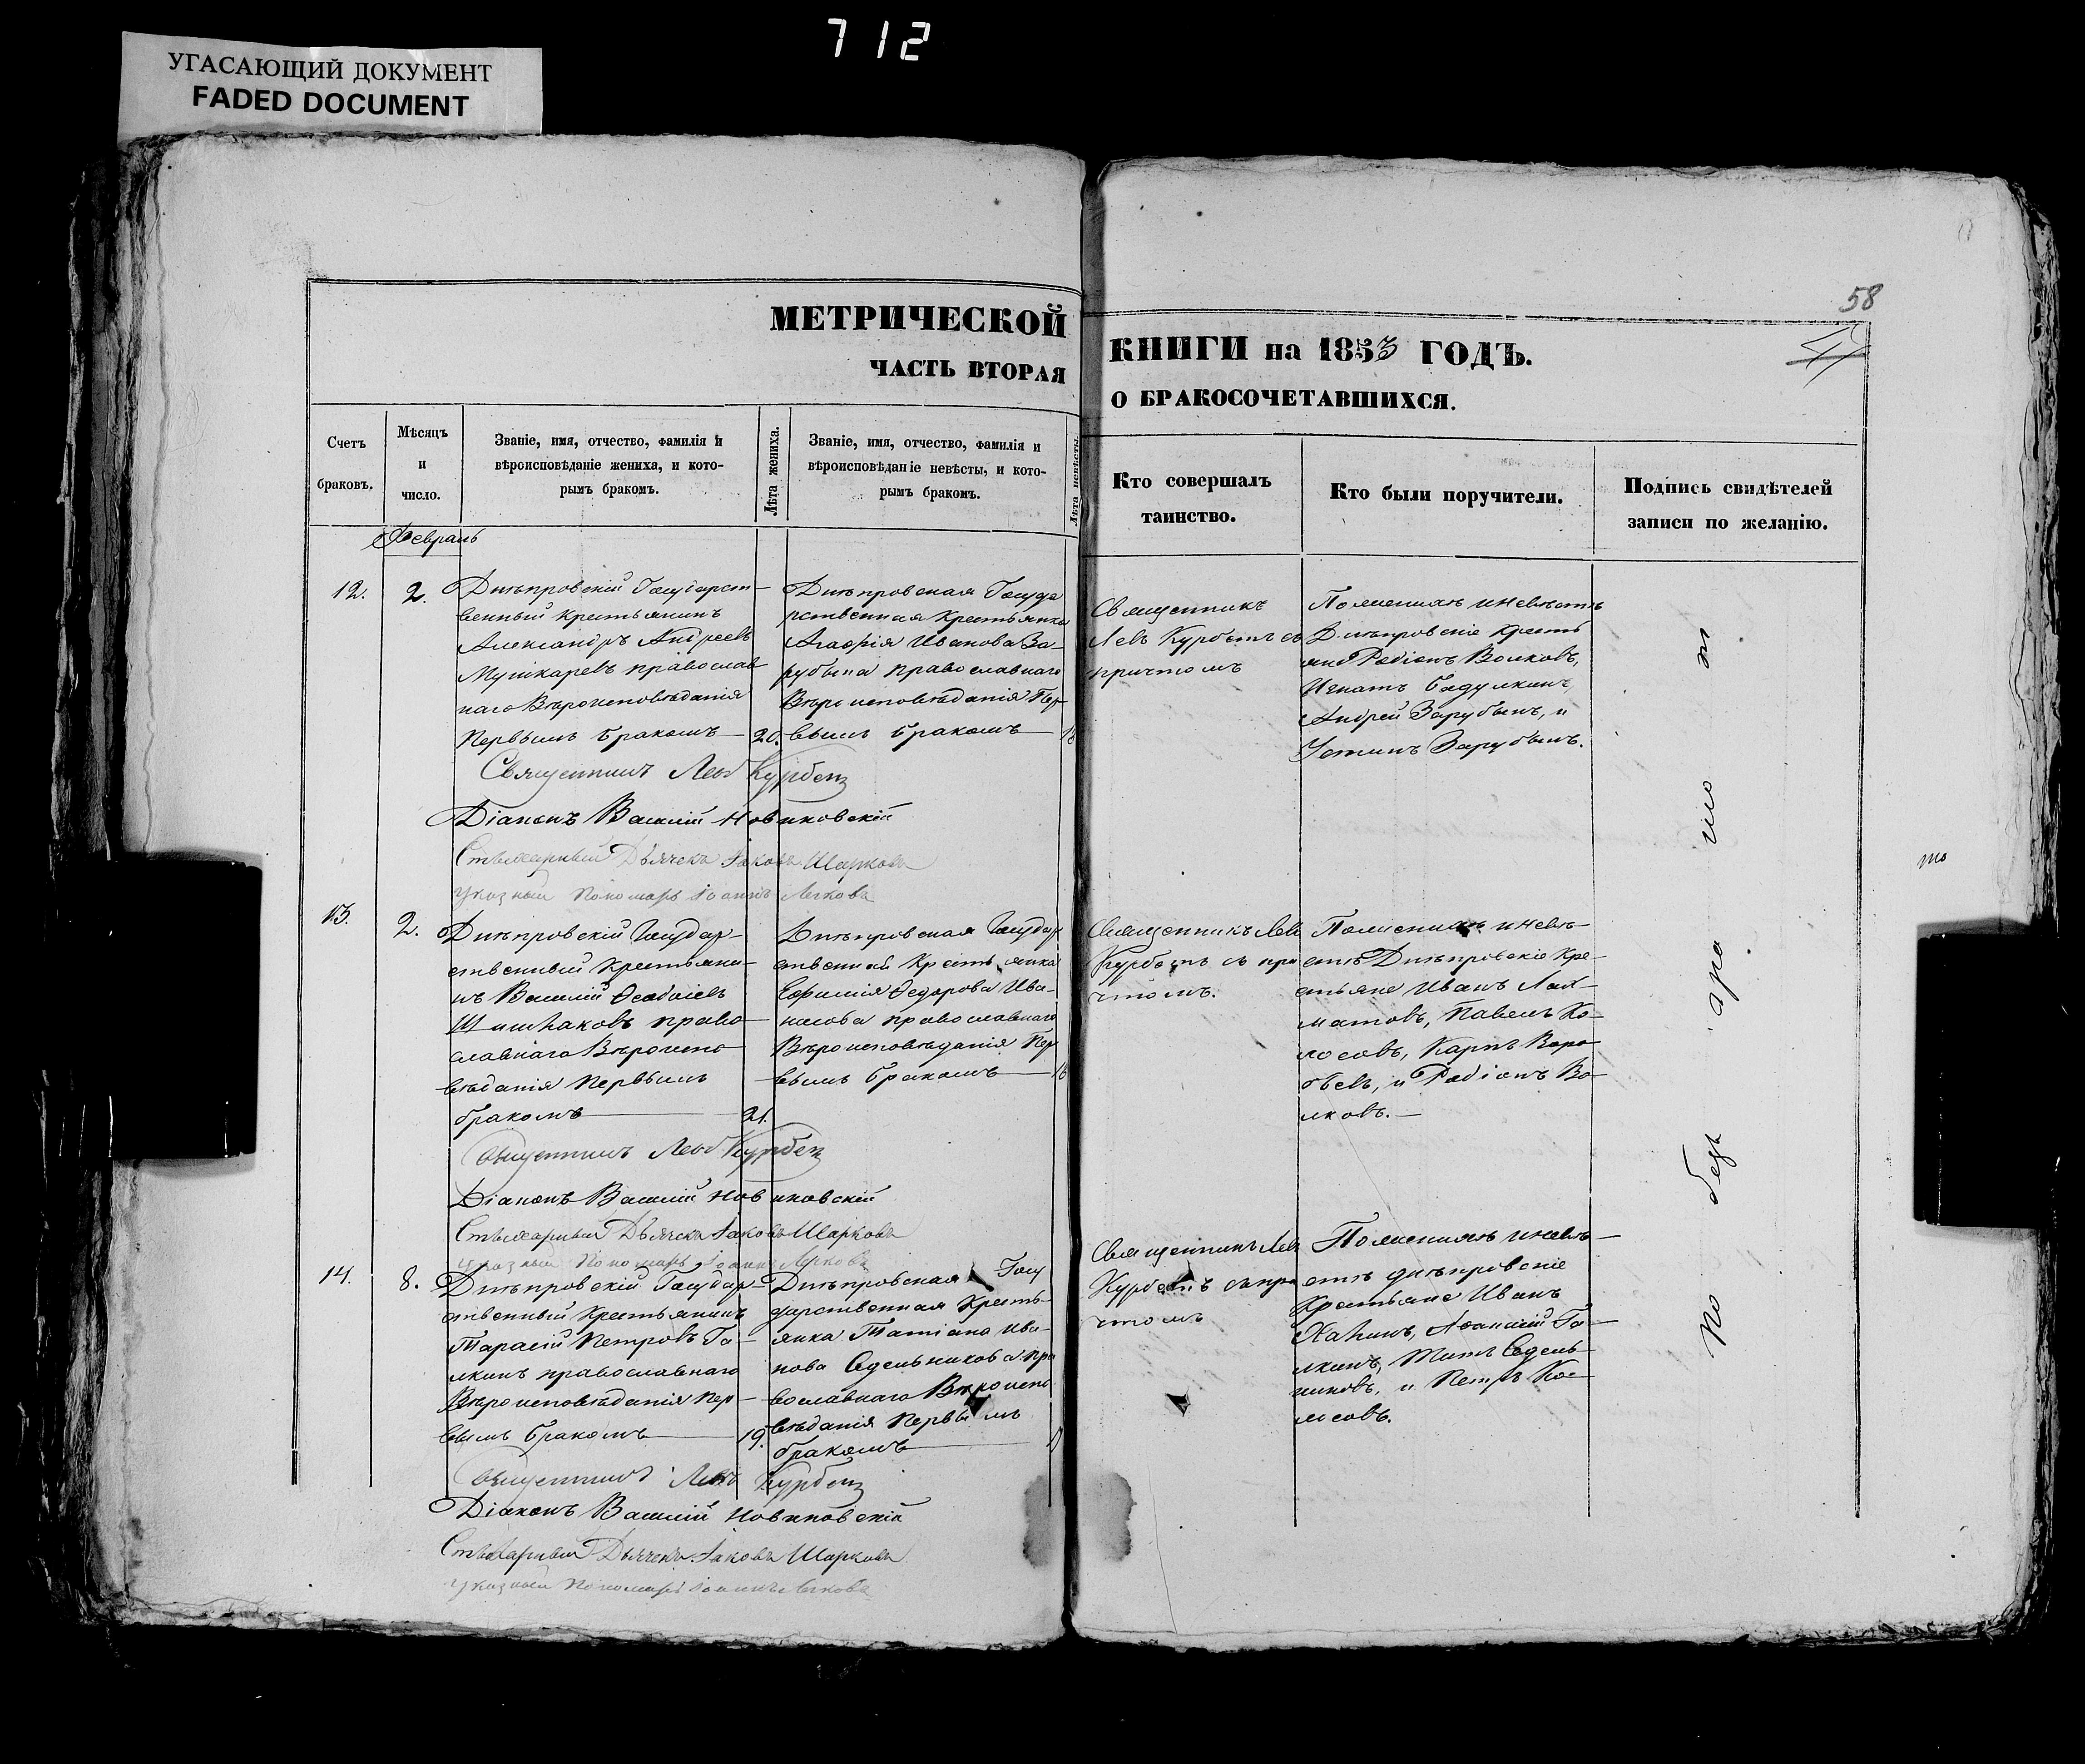 712
УГАСАЮЩИЙ ДОКУМЕНТ
FADED DOCUMENT
58
МЕТРИЧЕСКОЙ КНИГИ на 1853 ГОДЪ.
ЧАСТЬ ВТОРАЯ О БРАКОСОЧЕТАВШИХСЯ.
Счетъ
браковъ.
Мѣсяцъ
и
число.
Званіе, имя, отчество, фамилія и
вѣроисповѣданіе жениха, и кото-
рымъ бракомъ.
Лѣта жениха.
Званіе, имя, отчество, фамилія и
вѣроисповѣданіе невѣсты, и кото-
рымъ бракомъ.
Лѣта невѣсты.
Кто совершалъ
таинство.
Кто были поручители.
Подпись свидѣтелей
записи по желанію.
Февраль
12.
2.
Днѣпровскій Государст-
венный Крестьянинъ
Александръ Андреевъ
Мушкаревъ православ
наго Вѣроисповѣданія
Первымъ бракомъ
20.
Днѣпровская Госуда
рственная Крестьянка
Агафія Иванова За-
рубина православнаго
Вѣроисповѣданія Пер-
вымъ бракомъ
18
Священникъ
Левъ Курбетъ съ
причтомъ
По женихѣ и невѣстѣ
Днѣпровскіе Кресть
яне Родіонъ Волковъ,
Игнатъ
Андрей Зарубинъ, и
Устинъ Зарубинъ.
Священникъ Левъ Курбетъ
Діаконъ Василій Новиковскій
Стихарный Дьячекъ Іаковъ Шарковъ
указный Пономарь Іоаннъ
13.
2.
Днѣпровскій Государ-
ственный Крестьяни-
нъ Василій
Шишкаковъ право-
славнаго Вѣроиспо
вѣданія Первымъ
бракомъ
21.
Днѣпровская Государ
ственная Крестьянка
Ефимія Ѳедорова Ива-
нисова православнаго
Вѣроисповѣданія Пер
вымъ бракомъ
Священникъ Левъ
Курбетъ съ при
чтомъ.
По женихѣ и невѣ-
стѣ Днѣпровскіе Кре-
стьяне Иванъ Лах-
матовъ, Павелъ Ко-
лосовъ, Карпъ Воро
бьевъ, и Родіонъ Во-
лковъ.
Священникъ Левъ Курбетъ
Діаконъ Василій Новиковскій
Стихарный Дьячекъ Іаковъ Шарковъ
указный Пономарь Іоаннъ
14.
8.
Днѣпровскій Государ-
ственный Крестьянинъ
Тарасій Петровъ Га-
лкинъ православнаго
Вѣроисповѣданія Пер-
вымъ бракомъ
19.
Днѣпровская Госу
дарственная Кресть-
янка Татіана Ива-
нова Седельникова пра
вославнаго Вѣроиспо
вѣданія Первымъ
бракомъ
Священникъ Левъ
Курбетъ съ при
чтомъ
По женихѣ и невѣ-
стѣ днѣпровскіе
Крестьяне Иванъ
Аѳанасій Га-
лкинъ, Титъ Седель-
никовъ, и Петръ Ко-
лосовъ.
Священникъ Левъ Курбетъ
Діаконъ Василій Новиковскій
Стихарный Дьячекъ Іаковъ Шарковъ
указный Пономарь Іоаннъ
По безъ